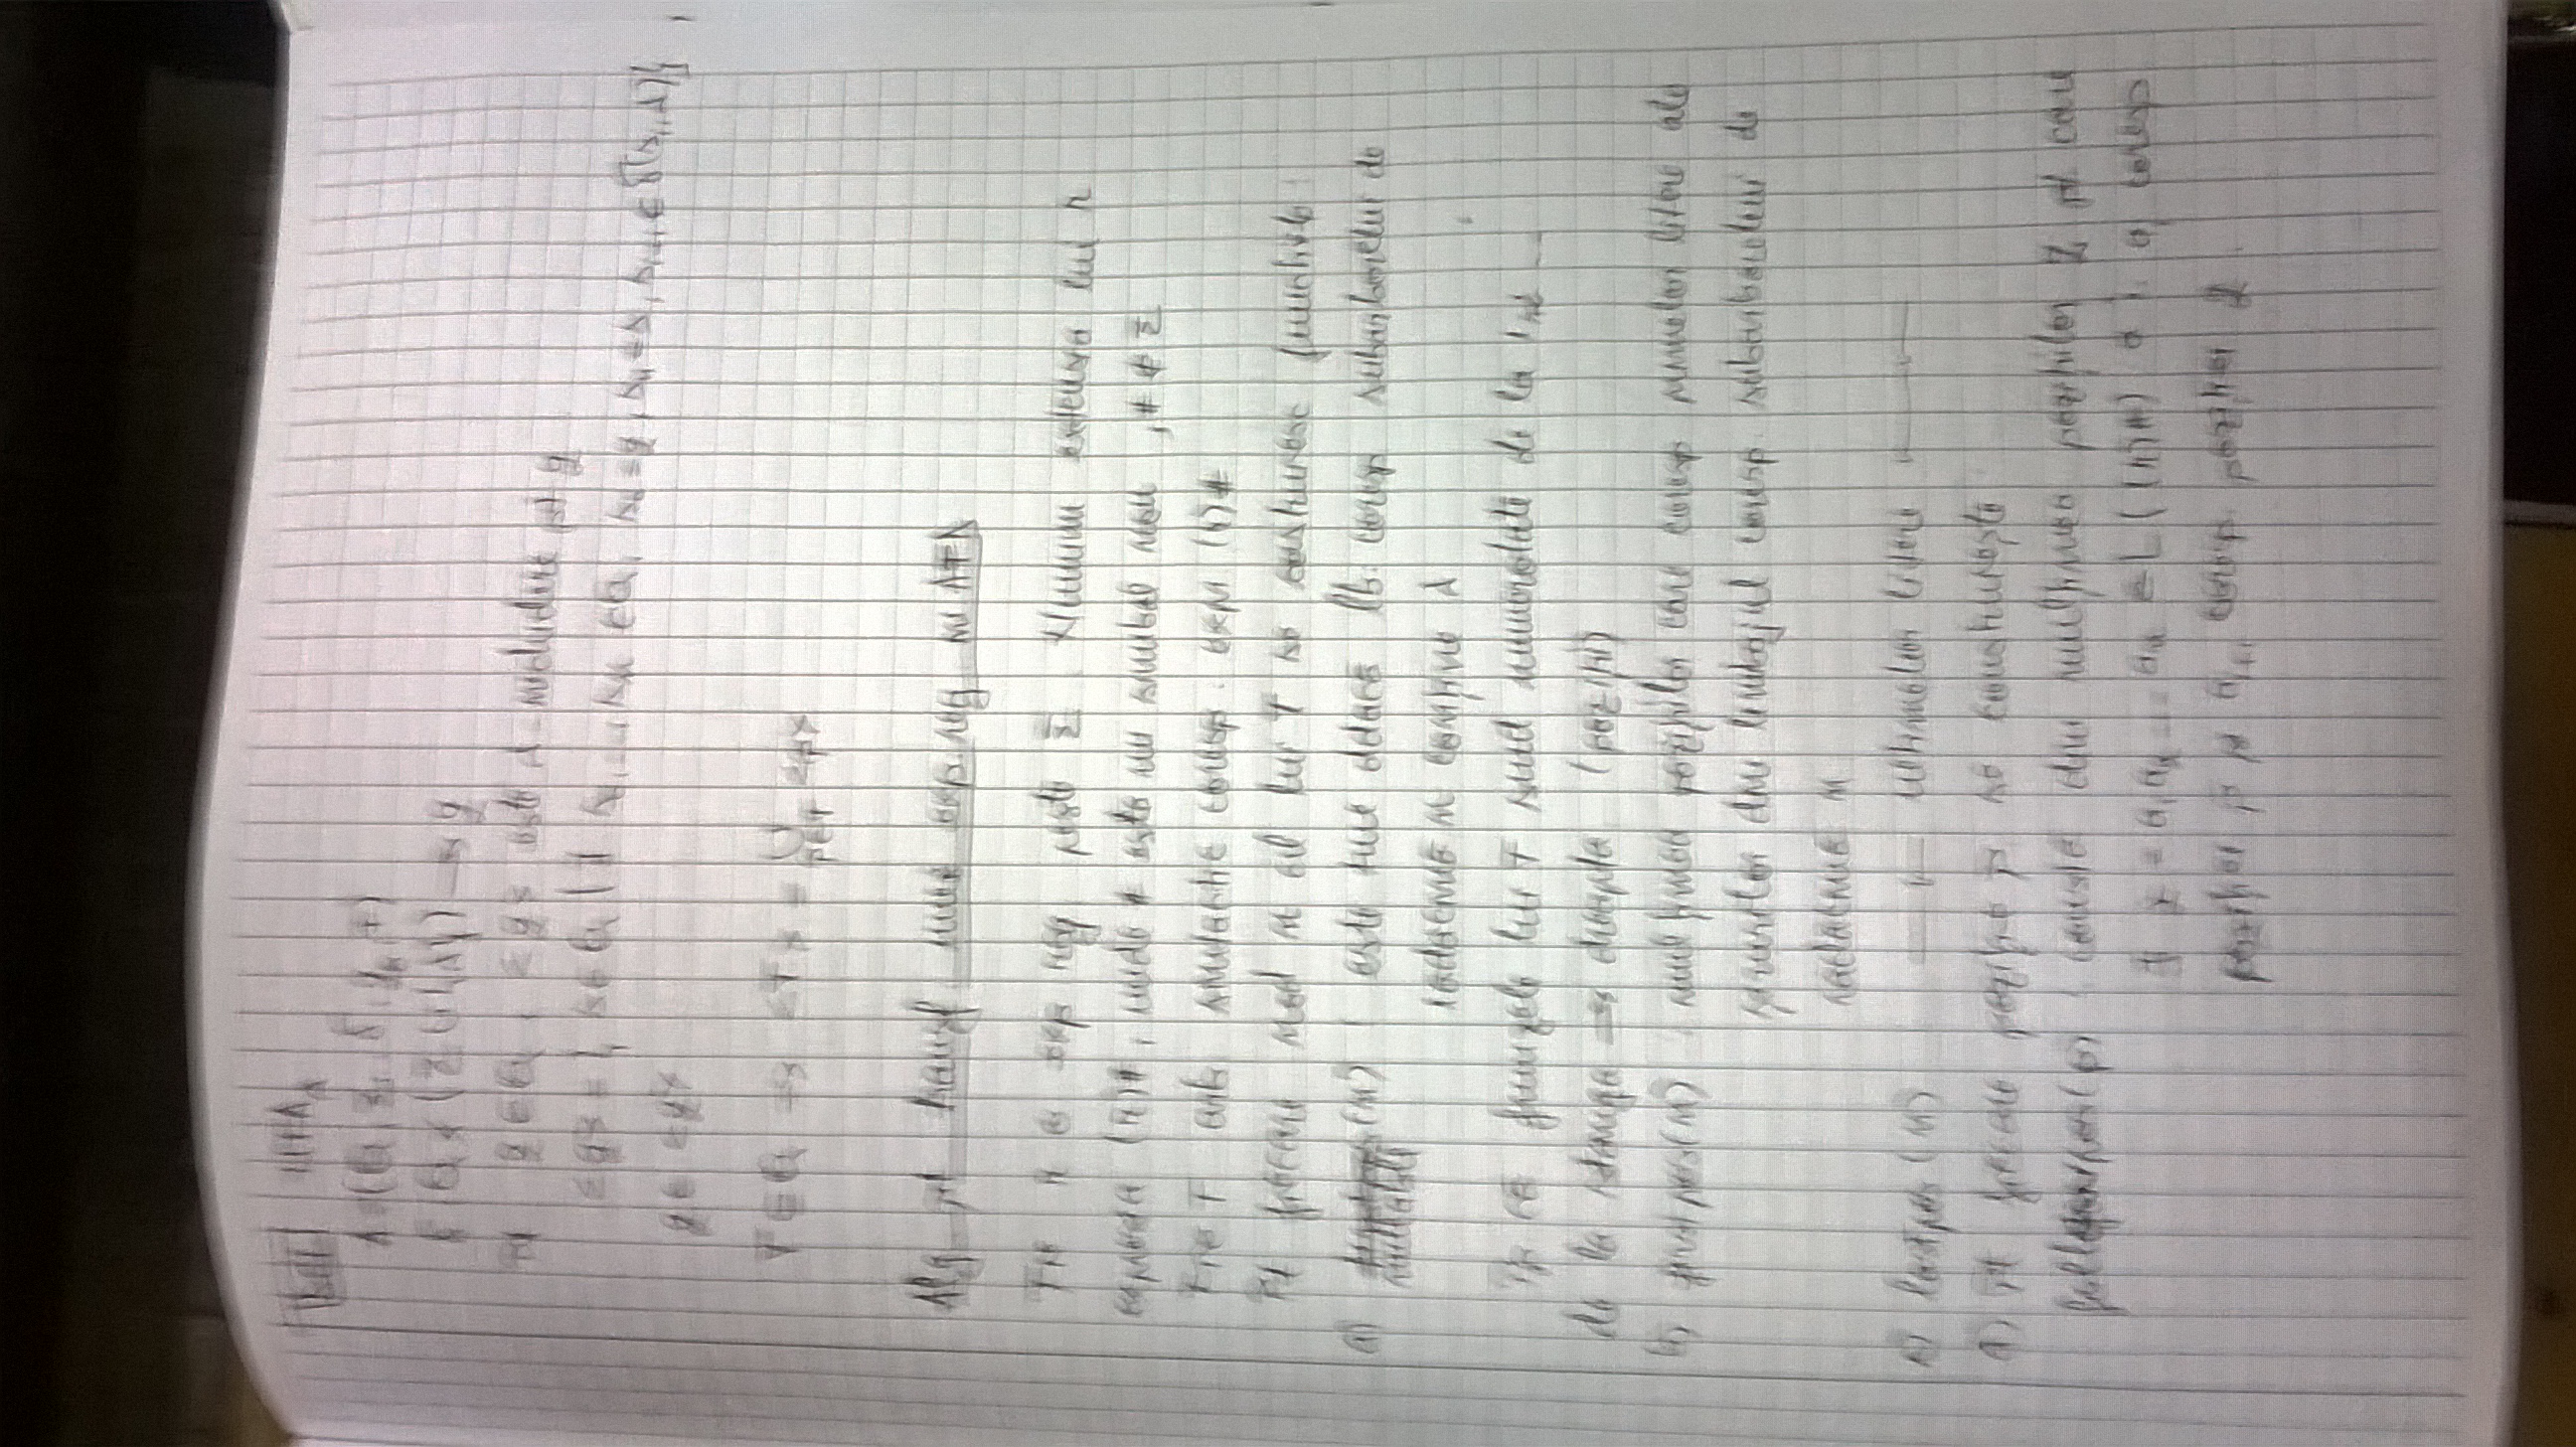 A = (Q, Σ, δ, q₀, F)
δ: Q × (Σ ∪ {λ}) →
q ∈ Q, <q> este λ-închidere pt q
<q> = { s ∈ Q | ∃ s₀, ..., sₙ ∈ Q, s₀ = q, sₙ = s, sᵢ₊₁ ∈ δ(sᵢ, λ)}
q ∈ <q>
T ∈ Q => <T> = ∪ p∈T <p>
Alg pt transf unei exp. reg în AFD
Fie r o exp reg peste Σ. Numim extensia lui r
expresia (r)#, unde # este un simbol nou, # ∉ Σ
Fie T arb sintactic coresp. expr (r)#
Pt fiecare nod n al lui T se construiesc funcțiile:
a) nullable (n) : este true ddacă lb. coresp subarborelui de
rădăcină n conține λ
Pp că frunzele lui T sunt numerotate de la 1, ...
de la stânga => dreapta (poziții)
b) firstpos(n) : mulțimea pozițiilor care coresp primelor litere ale
șirurilor din limbajul coresp. subarborelui de
rădăcină n
c) lastpos(n) —"— ultimelor litere —"—
d) Pt fiecare poziție p se construiește
followpos(p) : constă din mulțimea pozițiilor q pt care
∃ x = a₁a₂ ... aₙ ∈ L((r)#) a.î. aᵢ coresp
poziției p și aᵢ₊₁ coresp. poziției q.